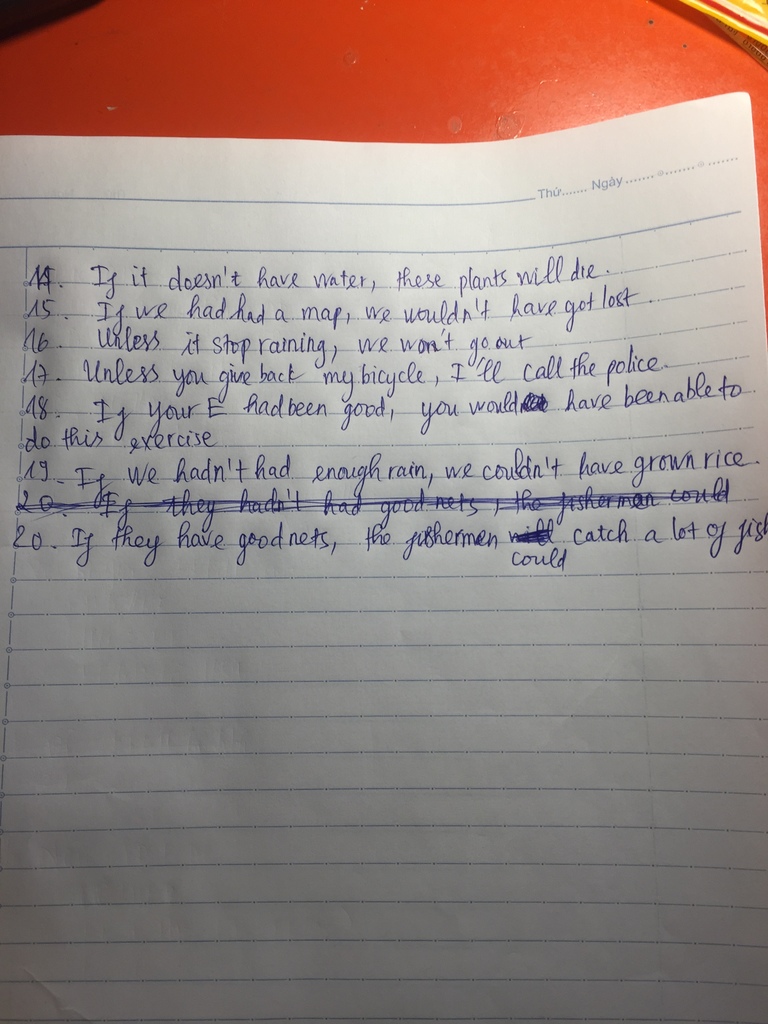 Thứ....... Ngày.......
14. If it doesn't have water, these plants will die.
15. If we had had a map, we wouldn't have got lost.
16. Unless it stop raining, we won't go out
17. Unless you give back my bicycle, I'll call the police.
18. If your E had been good, you would have been able to
do this exercise
19. If we hadn't had enough rain, we couldn't have grown rice.
20. If they hadn't had good nets, the fishermen could
20. If they have good nets, the fishermen will catch a lot of fish
could